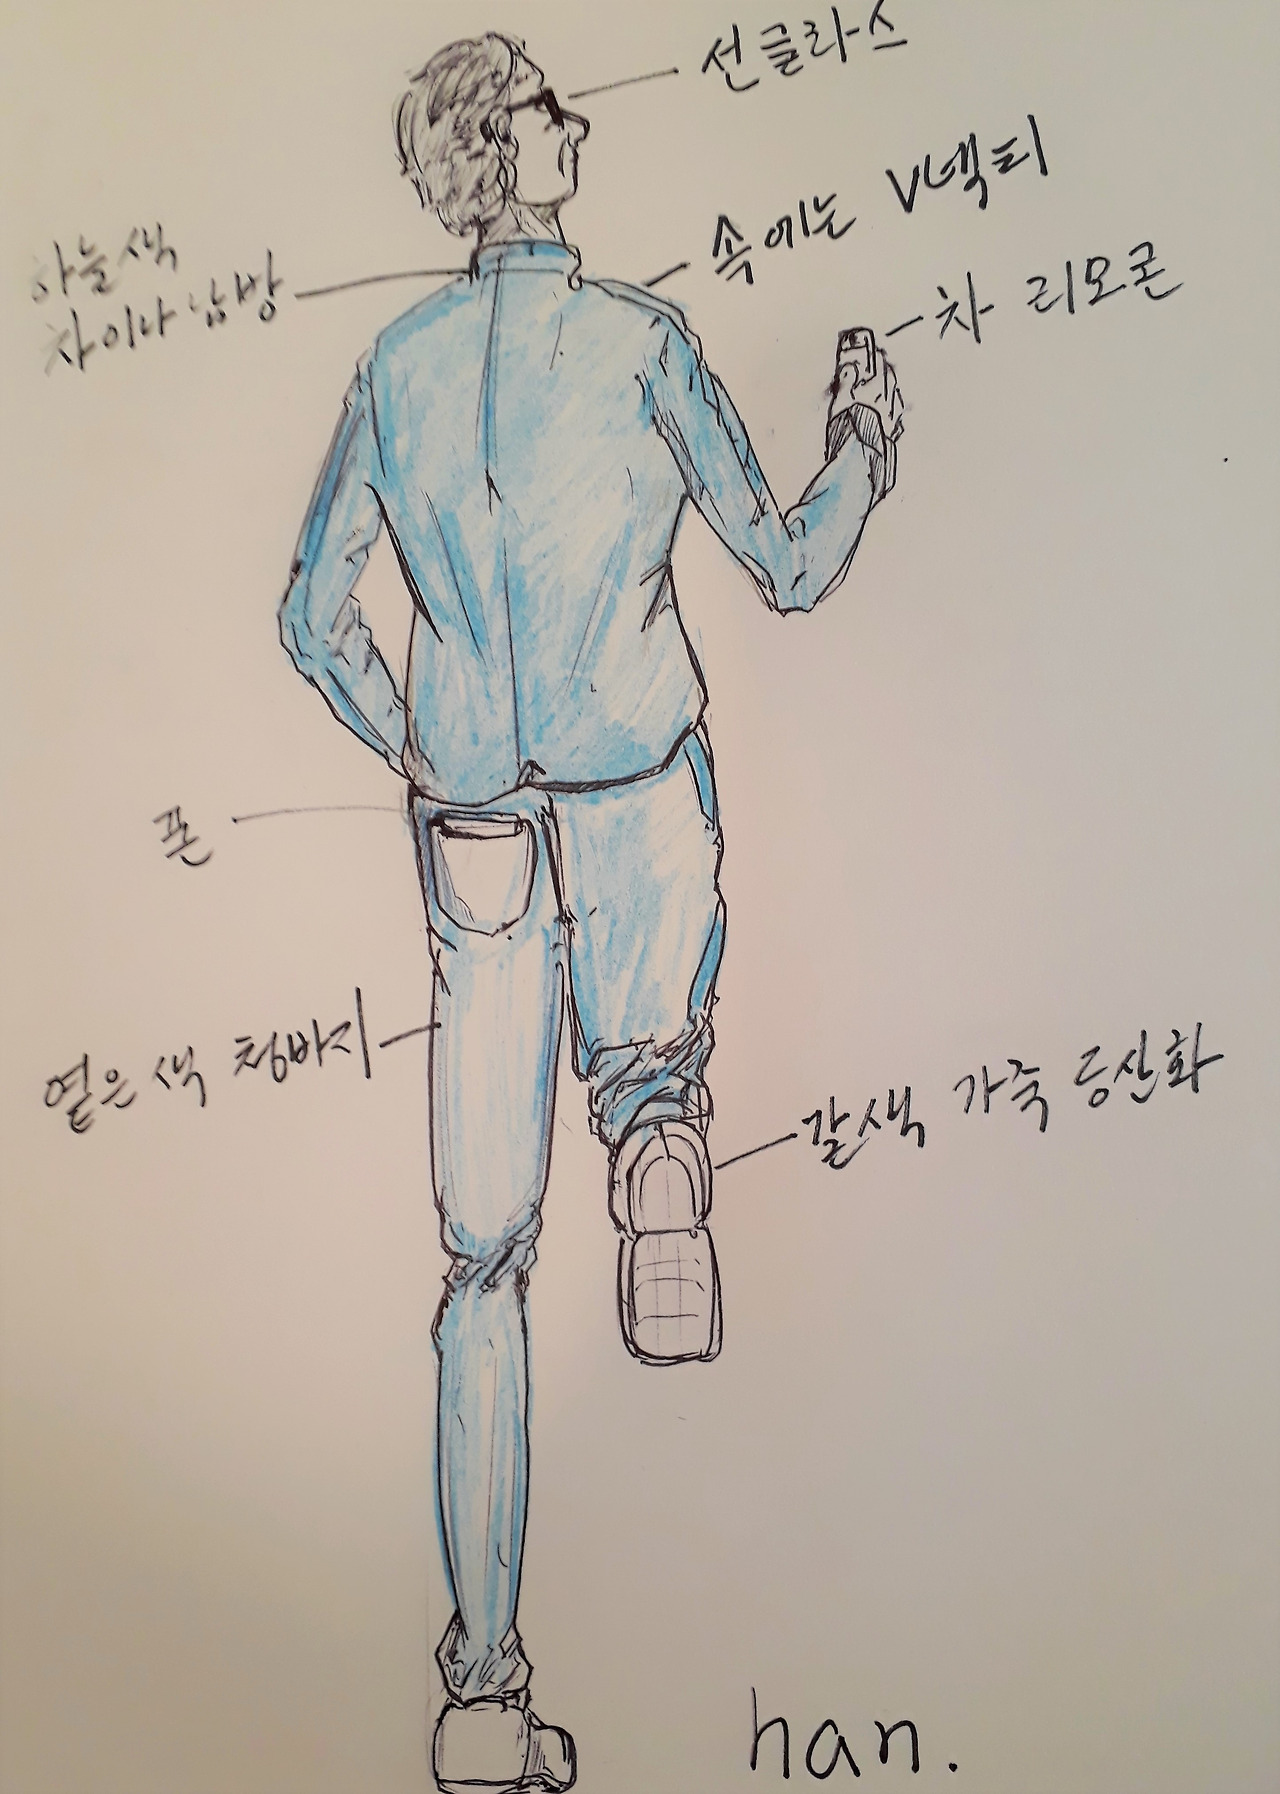 선글라스
속에는 V넥티
하늘색
차이나 남방
차 리모콘
폰
옅은 색 청바지
갈색 가죽 등산화
han.